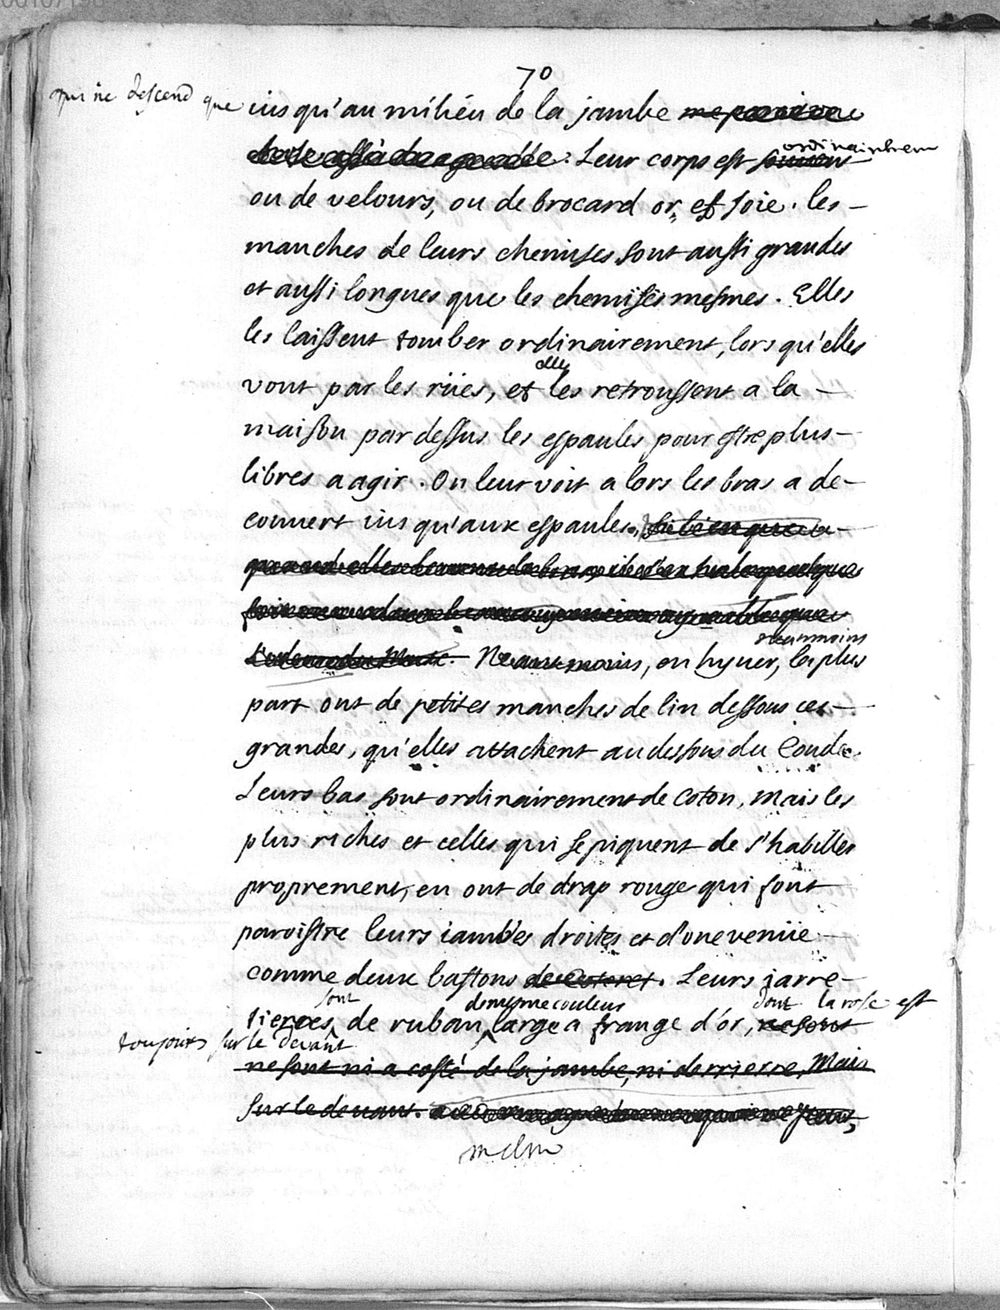 70
qui ne descend que iusqu'au milieu de la jambe
Leur corps est ordinairem
ou de velours, ou de brocard or, et soie. les
manches de leurs chemises sont aussi grandes
et aussi longues que les chemises mesmes. Elles
les laissent tomber ordinairement, lors qu'elles
vont par les rües, et elles les retroussent a la
maison par dessus les espaules pour estre plus
libres a agir. On leur voit alors les bras a de-
couvert iusqu'aux espaules. si bien que
l'odeur du Musc. Neantmoins, en hyver, neanmoins la plus
part ont de petites manches de lin dessous ces
grandes, qu'elles attachent au dessous du Coude.
Leurs bas sont ordinairement de Coton, Mais les
plus riches et celles qui se piquent de s'habiller
proprement, en ont de drap rouge qui font
paroistre leurs iambes droites et d'une venüe
comme deux bastons de Coteret. Leurs iarre-
tieres sont de ruban de mesme couleur large a frange d'or, ne sont dont la rose est
toujours sur le devant
ne sont ni a costé de la jambe, ni derriere, Mais
sur le devant.